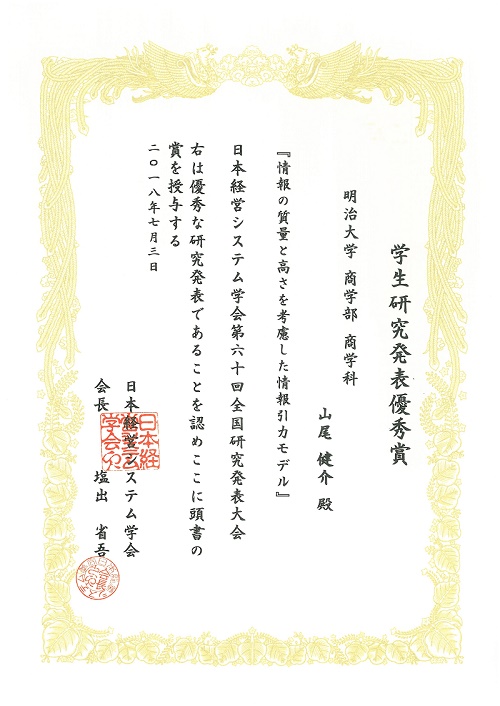 学生研究発表優秀賞
明治大学 商学部 商学科
山尾 健介 殿
『情報の質量と高さを考慮した情報引力モデル』
日本経営システム学会第六十回全国研究発表大会
右は優秀な研究発表であることを認めここに頭書の
賞を授与する
二〇一八年七月三日
日本経営システム学会
会長 塩出 省吾
日本経
営システム
学会之印